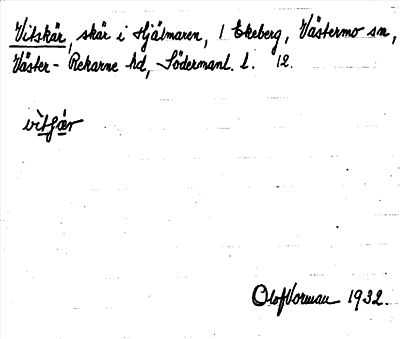 Vitskär, skär i Hjälmaren, 1 Ekeberg, Västermo sn,
Väster-Rekarne hd, Södermanl. l. 12.
Olof Vorman 1932.